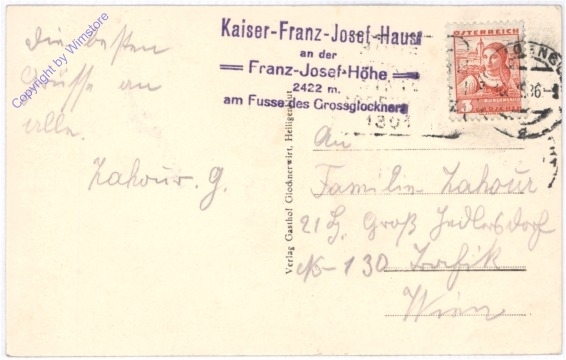 Die besten
Grüsse an
alle.
Zahour. G.
Copyright by Wimstore
Kaiser-Franz-Josef-Haus
an der
Franz-Josef-Höhe
2422 m.
am Fusse des Grossglockners
ÖSTERREICH
3
Verlag Gasthof Glocknerwirt, Heiligenblut
An
Familie Zahour
21 Bz. Groß Jedlersdorf
130 Trafik
Wien